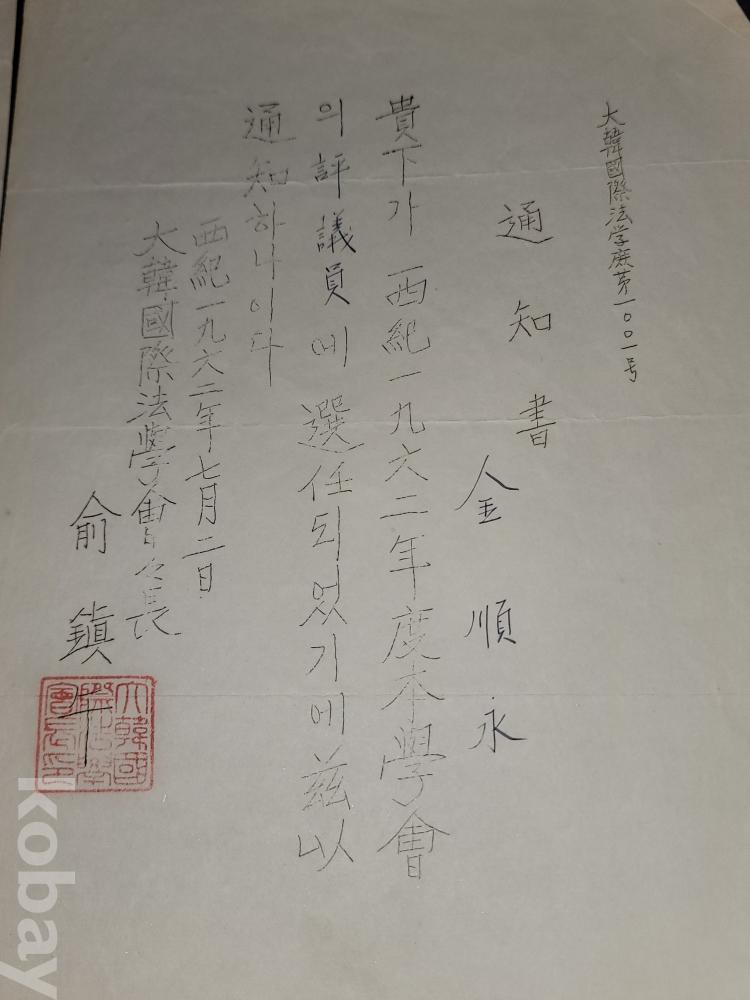 大韓國際法学庶第一〇〇一号
通知書
金順永
貴下가 西紀一九六二年度本學會
의 評議員에 選任되었기에 玆以
通知하나이다
西紀一九六二年七月二日
大韓國際法學會々長
俞鎭午
大韓國際法學會長印
kobay